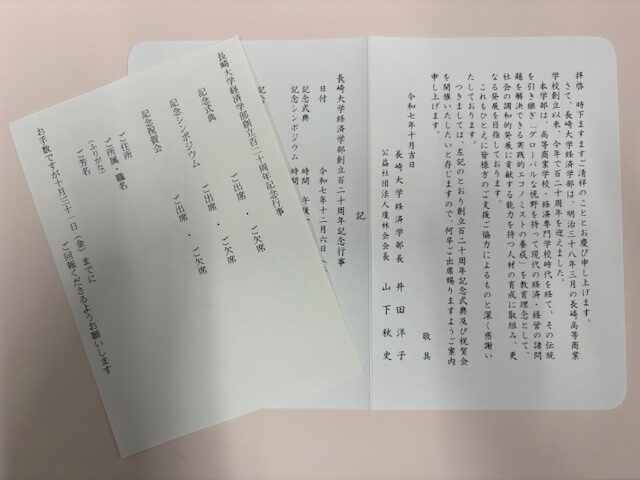 拝啓　時下ますますご清祥のこととお慶び申し上げます。
さて、長崎大学経済学部は、明治三十八年三月の長崎高等商業
学校創立以来、今年で百二十周年を迎えました。
本学部は、高等商業学校・経済専門学校時代を経て、その伝統
を引き継ぎ、「グローバルな視野を持って現代の経済・経営の諸問
題を解決できる実践的エコノミストの養成」を教育理念として、
社会の調和的発展に貢献する能力を持つ人材の育成に取組み、更
なる発展を目指しております。
これもひとえに皆様方のご支援ご協力によるものと深く感謝い
たしております。
つきましては、左記のとおり創立百二十周年記念式典及び祝賀会
を開催いたしたいと存じますので、何卒ご出席賜りますようご案内
申し上げます。
敬具
令和七年十月吉日
長崎大学経済学部長　井田洋子
公益社団法人瓊林会会長　山下秋史
記
長崎大学経済学部創立百二十周年記念行事
日付　令和七年十二月六日
記念式典　時間　午後
記念シンポジウム　時間
長崎大学経済学部創立百二十周年記念行事
記念式典　ご出席・ご欠席
記念シンポジウム　ご出席・ご欠席
記念祝賀会　ご出席・ご欠席
ご住所
ご所属・職名
（ふりがな）
ご芳名
お手数ですが十月三十一日（金）までに
ご回報くださるようお願いします